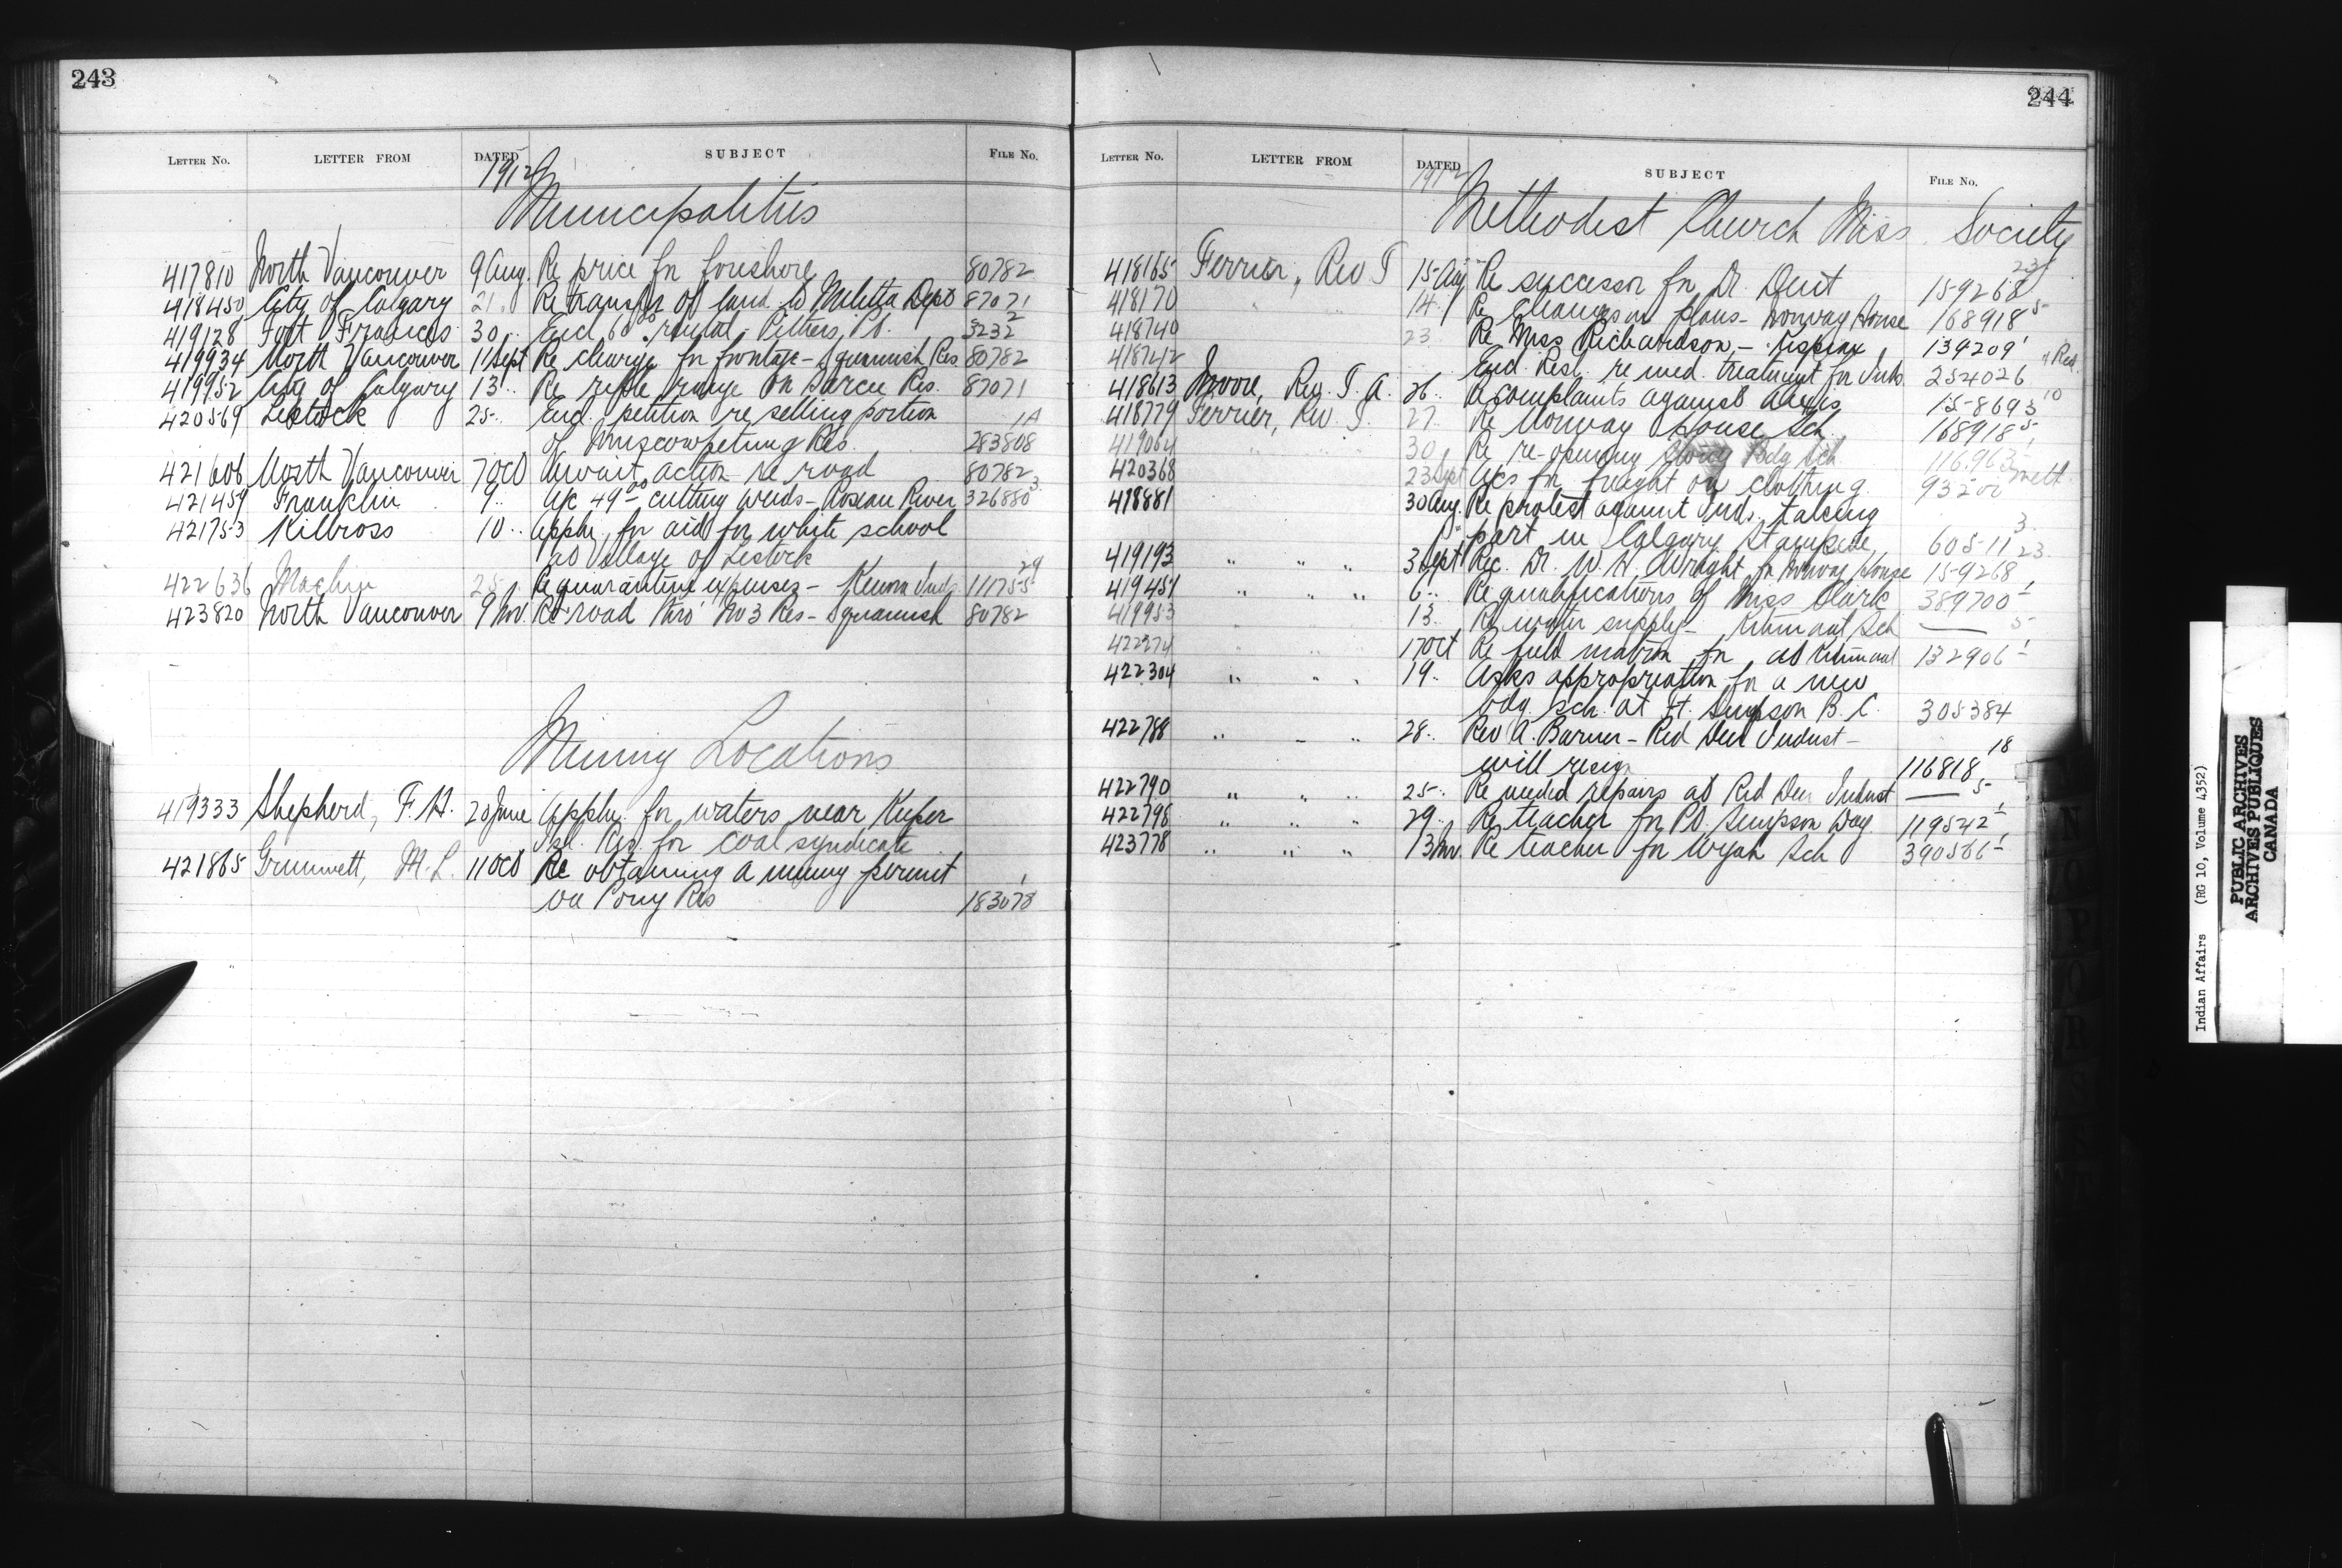 243
LETTER NO. LETTER FROM DATED SUBJECT FILE NO.
1912
Municipalities
417810 North Vancouver 9 Aug. Re price for foreshore 80782
418450 City of Calgary 21 Re transfer of land to Militia Dept 87071
419128 Fort Frances 30 Encl 60.00 rental Pithers Pt. 3232 2
419934 North Vancouver 11 Sept Re charge for frontage - Squamish Res. 80782
419952 City of Calgary 13 Re rifle range on Sarcee Res. 87071
420569 Lestock 25 Encl. petition re selling portion 1A
of Muscowpetung Res. 283808
421606 North Vancouver 7 Oct Await action re road 80782
421459 Franklin 9 a/c 49.00 cutting weeds - Roseau River 326880 3
421753 Kilross 10 Appln. for aid for white school
at Village of Lestock
422636 Machin 25 Re quarantine expenses - Kenora Inds 111755 29
423820 North Vancouver 9 Nov. Re road thro' No 3 Res - Squamish 80782
Mining Locations
419333 Shepherd, F. H. 20 June Appln. for waters near Kuper
Isl. Res. for coal syndicate
421865 Grimmett, M. L. 11 Oct Re obtaining a mining permit
on Pony Res 183078 1
244
LETTER NO. LETTER FROM DATED SUBJECT FILE NO.
1912
Methodist Church Miss. Society
418165 Ferrier, Rev T 15 Aug Re successor for Dr. Dent 159268 23
418170 " " 14 Re changes in plans - Norway House 168918 5
418740 23 Re Miss Richardson - Kispiax 139209 1
418742 Encl. Resl. re med. treatment for Inds. 254026
418613 Moore, Rev. T. A. 26 Re complaints against 158693 10
418779 Ferrier, Rev. T. 27 Re Norway House Sch 168918 5
419064 " " 30 Re re-opening Bdg Sch 116963
420368 23 Sept a/cs for freight on clothing
418881 30 Aug. Re protest against Inds. taking
part in Calgary Stampede, 60511 3
419193 " " " 3 Sept Rec. Dr. W. H. Wright for Norway House 159268 23
419451 " " " 6 Re qualifications of Miss Clark 389700 1
419953 13 Re water supply - Kitimaat Sch — 5
422274 17 Oct Re field matron for at Kitimaat 132906 1
422304 " " " 19 Asks appropriation for a new
bdg. sch. at Ft. Simpson B. C. 305384
422788 " " " 28 Rev A. Barner - Red Deer Indust -
will resign 116818 18
422790 " " " 25 Re needed repairs at Red Deer Indust — 5
422798 " " " 29 Re teacher for Pt. Simpson Day 119542 1
423778 " " " 13 Nov. Re teacher for Sch 390586 1
Indian Affairs (RG 10, Volume 4352)
PUBLIC ARCHIVES
ARCHIVES PUBLIQUES
CANADA